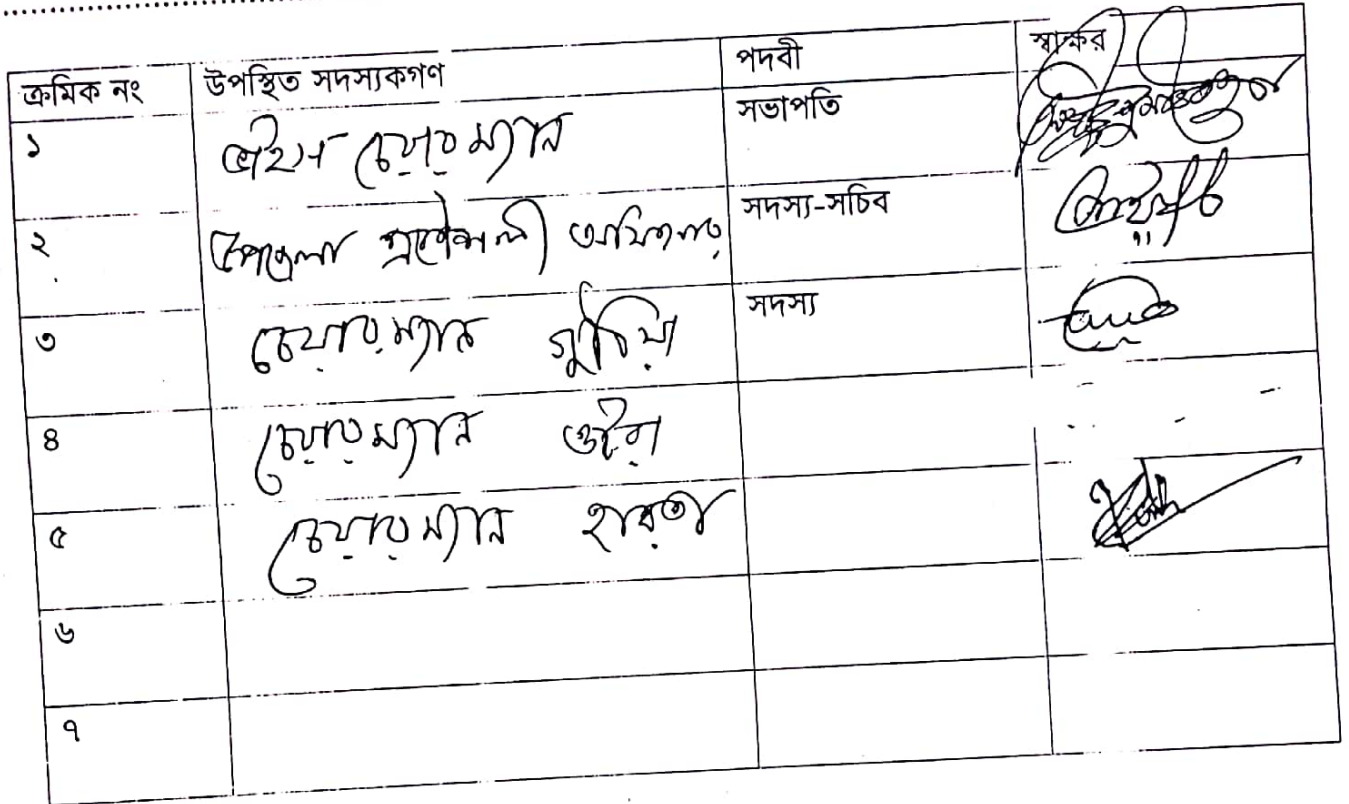 ক্রমিক নং উপস্থিত সদস্যকগণ পদবী স্বাক্ষর
১ ভাইস চেয়ারম্যান সভাপতি
২ উপজেলা প্রকৌশলী সদস্য-সচিব
৩ চেয়ারম্যান গুঠিয়া সদস্য
৪ চেয়ারম্যান ওটরা
৫ চেয়ারম্যান হারতা
৬
৭